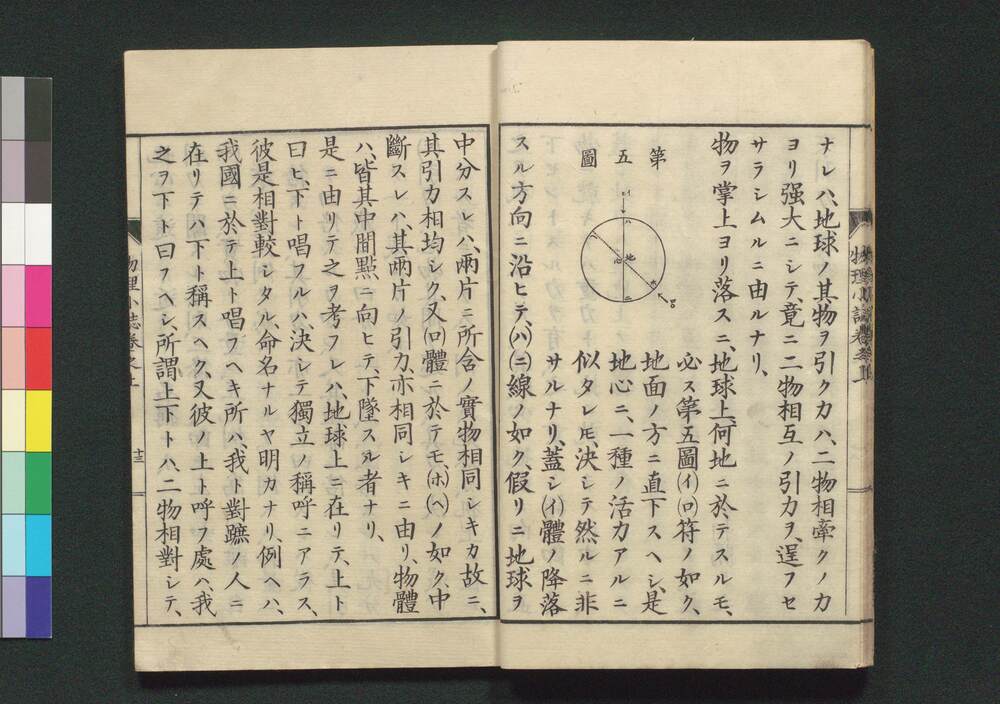 ナレハ、地球ノ其物ヲ引クカハ、二物相牽クノカ
ヨリ强大ニシテ、竟ニ二物相互ノ引力ヲ、逞フセ
サラシムルニ由ルナリ、
物ヲ掌上ヨリ落スニ、地球上、何地ニ於テスルモ、
必ス第五圖(イ)(ロ)符ノ如ク、
地面ノ方ニ直下スヘシ、是
地心ニ、一種ノ活力アルニ
似タレ𪜈、決シテ然ルニ非
サルナリ、蓋シ(イ)體ノ降落
スル方向ニ沿ヒテ、(ハ)(ニ)線ノ如ク、假リニ地球ヲ
第五圖
イ
ハ
地
心
ホ
ニ
ロ
物理小誌卷之上
中分スレハ、兩片ニ所含ノ實物相同シキカ故ニ、
其引力相均シク、又(ロ)體ニ於テモ、(ホ)(ヘ)ノ如ク、中
斷スレハ、其兩片ノ引力、亦相同シキニ由リ、物體
ハ、皆其中間點ニ向ヒテ、下墜スル者ナリ、
是ニ由リテ之ヲ考フレハ、地球上ニ在リテ、上ト
曰ヒ、下ト唱フルハ、決シテ獨立ノ稱呼ニアラス、
彼是相對較シタル、命名ナルヤ明カナリ、例ヘハ、
我國ニ於テ上ト唱フヘキ所ハ、我ト對蹠ノ人ニ
在リテハ下ト稱スヘク、又彼ノ上ト呼フ處ハ、我
之ヲ下ト曰フヘシ、所謂上下トハ、二物相對シテ、
物理小誌卷之上
十三